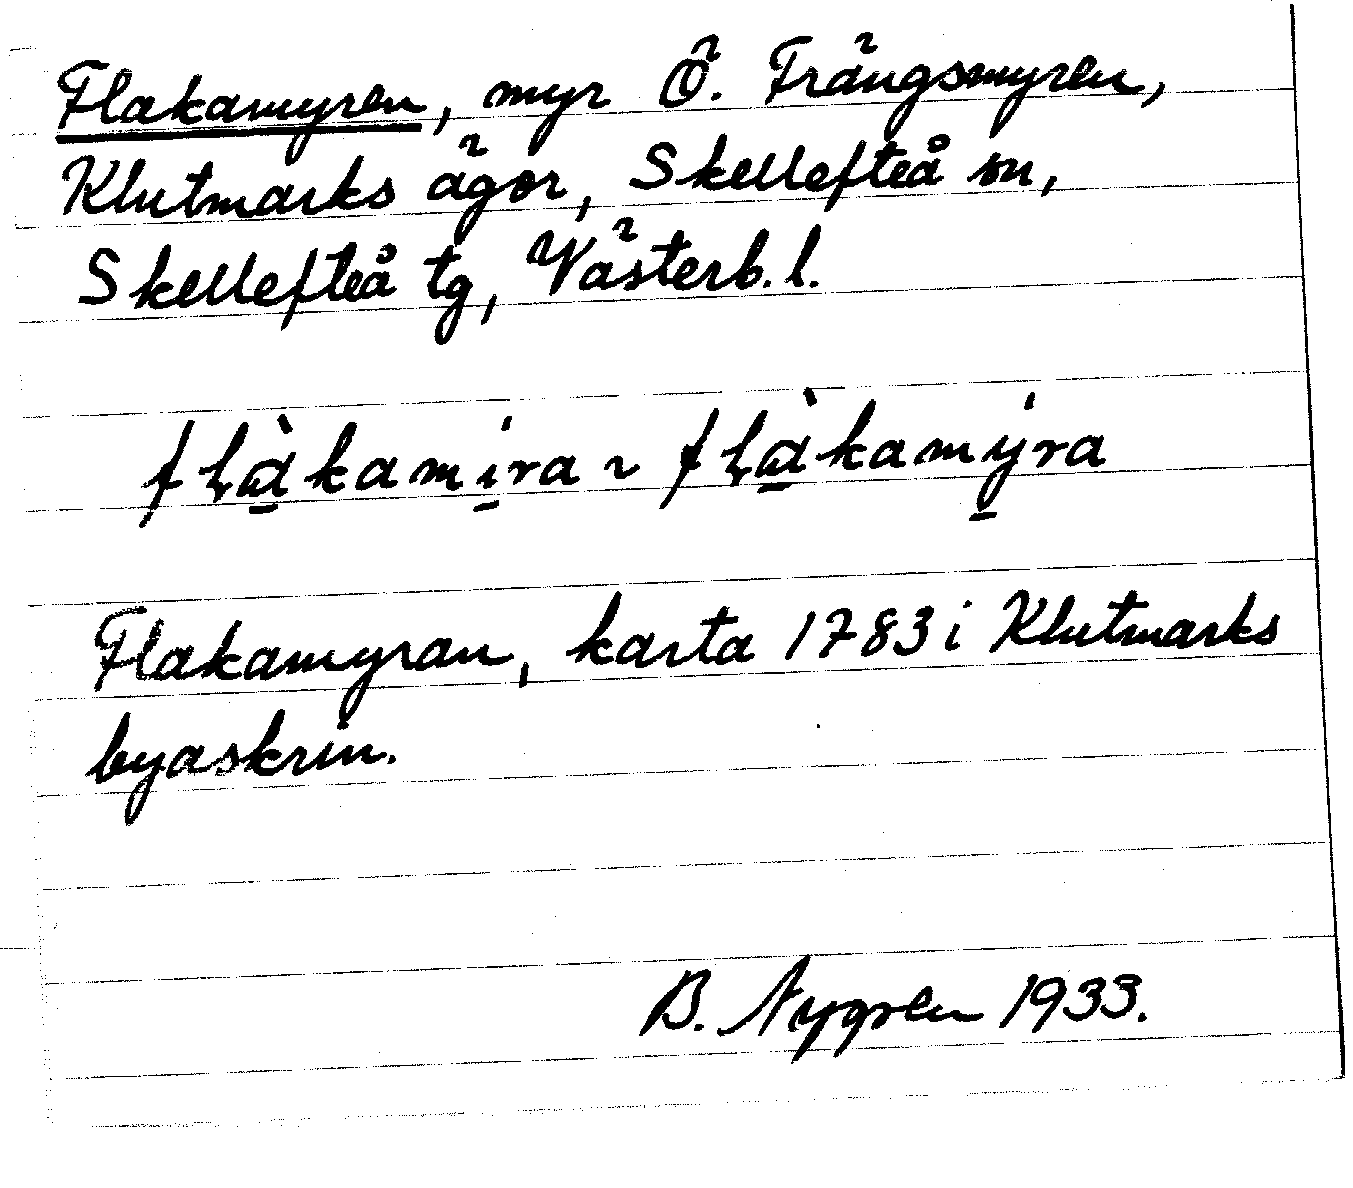 Flakamyren, myr Ö. Trängsmyren,
Klutmarks ägor, Skellefteå sn,
Skellefteå tg, Västerb. l.
flàkamira ~ flàkamyra
Flakamyran, karta 1783 i Klutmarks
byaskrin.
B. Nygren 1933.